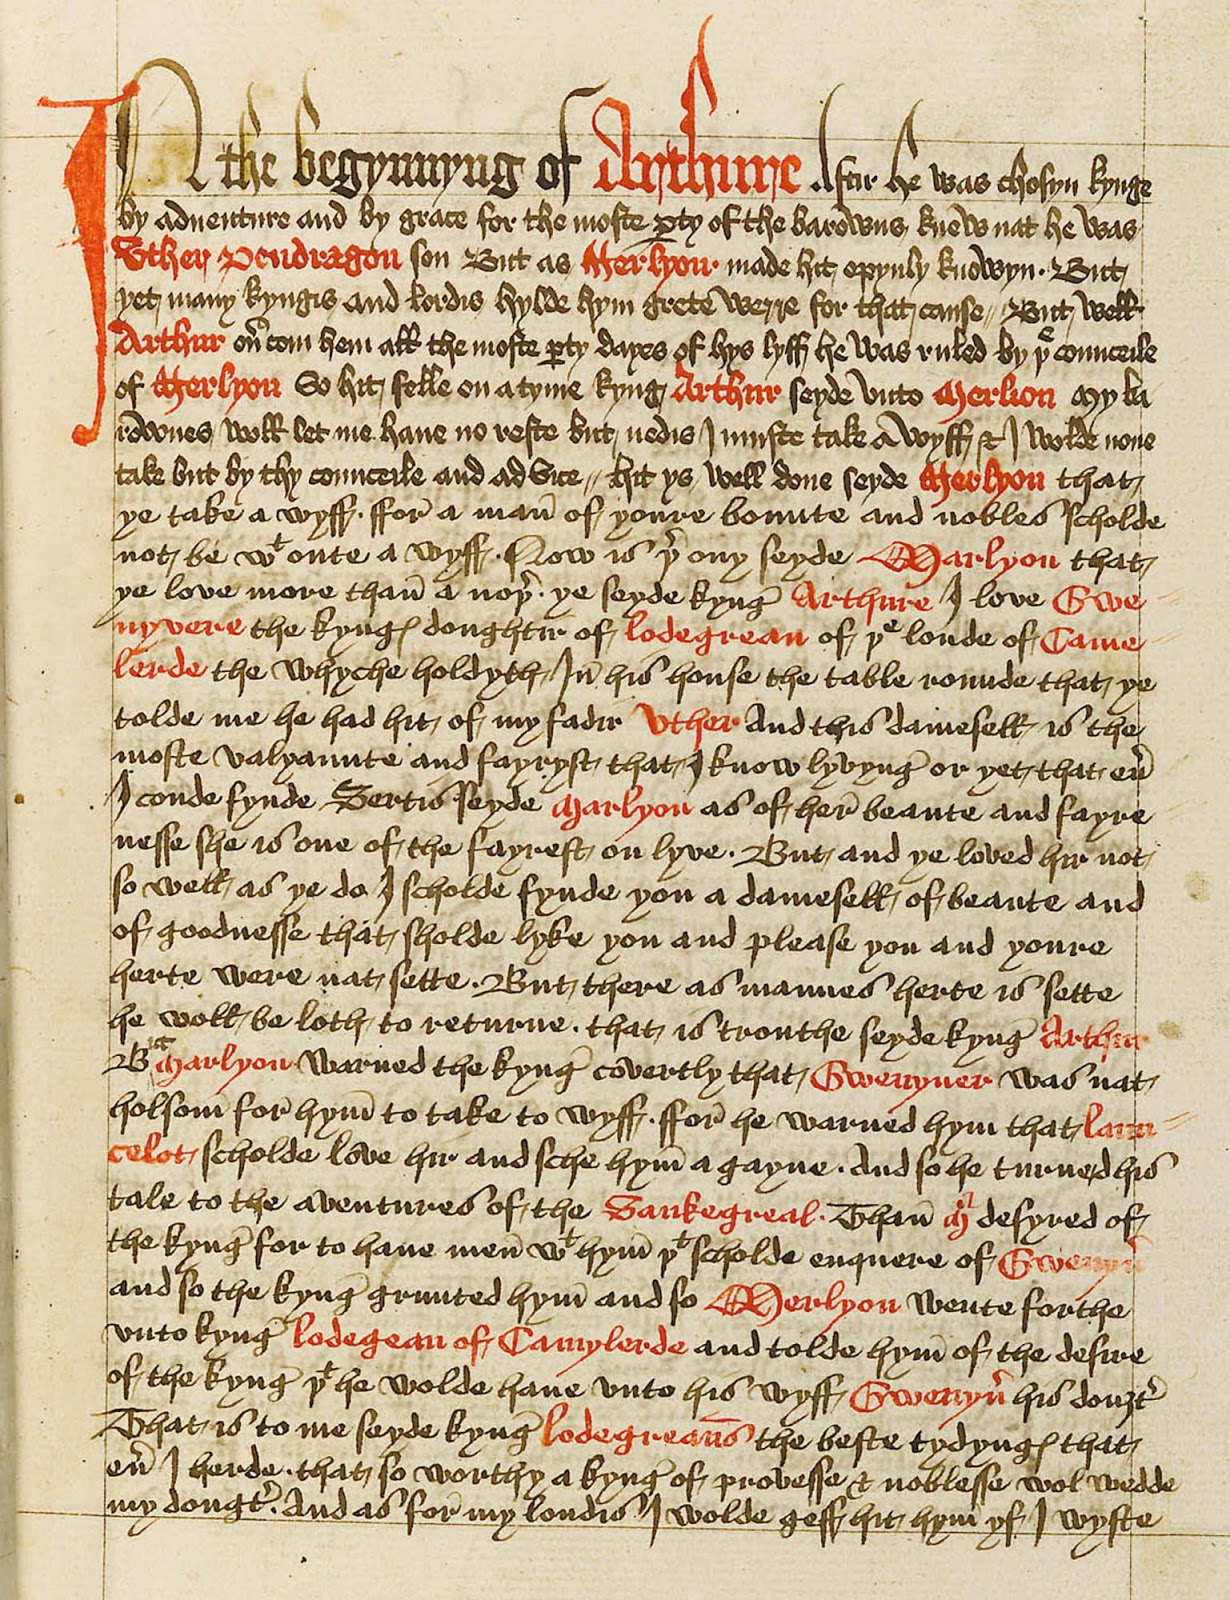 IN the begynnyng of Arthure Aftir he was chosyn kynge
by aduenture and by grace for the moste ꝑty of the barowns knew nat he was
Vther Pendragon son But as Merlyon made hit opynly knowyn. But
yet many kyngis and lordis hylde hym grete werre for that cause // But well
Arthur oũcom hem all the moste ꝑty dayes of hys lyff he was ruled by þe counceile
of Merlyon So hit felle on a tyme kyng Arthur seyde vnto Merlion My ba
rownes woll let me haue no reste but nedis I muste take a wyff & I wolde none
take but by thy counceile and advice // hit ys well done seyde Merlyon that
ye take a wyff. ffor a man̄ of youre bounte and nobles scholde
not be wt oute a wyff. Now is þ̉ ony seyde Marlyon that
ye love more than̄ a noþ̉. ye seyde kyng Arthure I love Gwe
nyvere the kyngꝭ doughtir of lodegrean of þe londe of Came
lerde the whyche holdyth In̄ his house the table rounde that ye
tolde me he had hit of my fadir Vther And this damesell is the
moste valyaunte and fayryst that I know lyvyng or yet that eũ
I coude fynde Sertis seyde Marlyon as of her beaute and fayre
nesse she is one of the fayrest on lyve. But and ye loved hir not
so well as ye do I scholde fynde you a damesell of beaute and
of goodnesse that sholde lyke you and please you and youre
herte were nat sette. But there as mannes herte is sette
he woll be loth to returne. that is trouthe seyde kyng Arthur
But Marlyon warned the kyng covertly that Gwenyver was nat
holsom̄ for hym̄ to take to wyff. ffor he warned hym that laun
celot scholde love hir and sche hym̄ agayne. And so he turned his
tale to the aventures of the Sankegreal. Than̄ M̉ desyred of
the kyng for to haue men̄ wt hym̄ þt scholde enquere of Gwenyũ
and so the kyng graunted hym̄ and so Merlyon wente forthe
vnto kyng lodegean of Camylerde and tolde hym̄ of the desire
of the kyng þt he wolde haue vnto his wyff Gwenyũ his douȝt̉
That is to me seyde kyng lodegreaũs the beste tydyngꝭ that
eũ I herde. that so worthy a kyng of prouesse & noblesse wol wedde
my dougt̉. And as for my londis I wolde geff hit hym yf I wyste